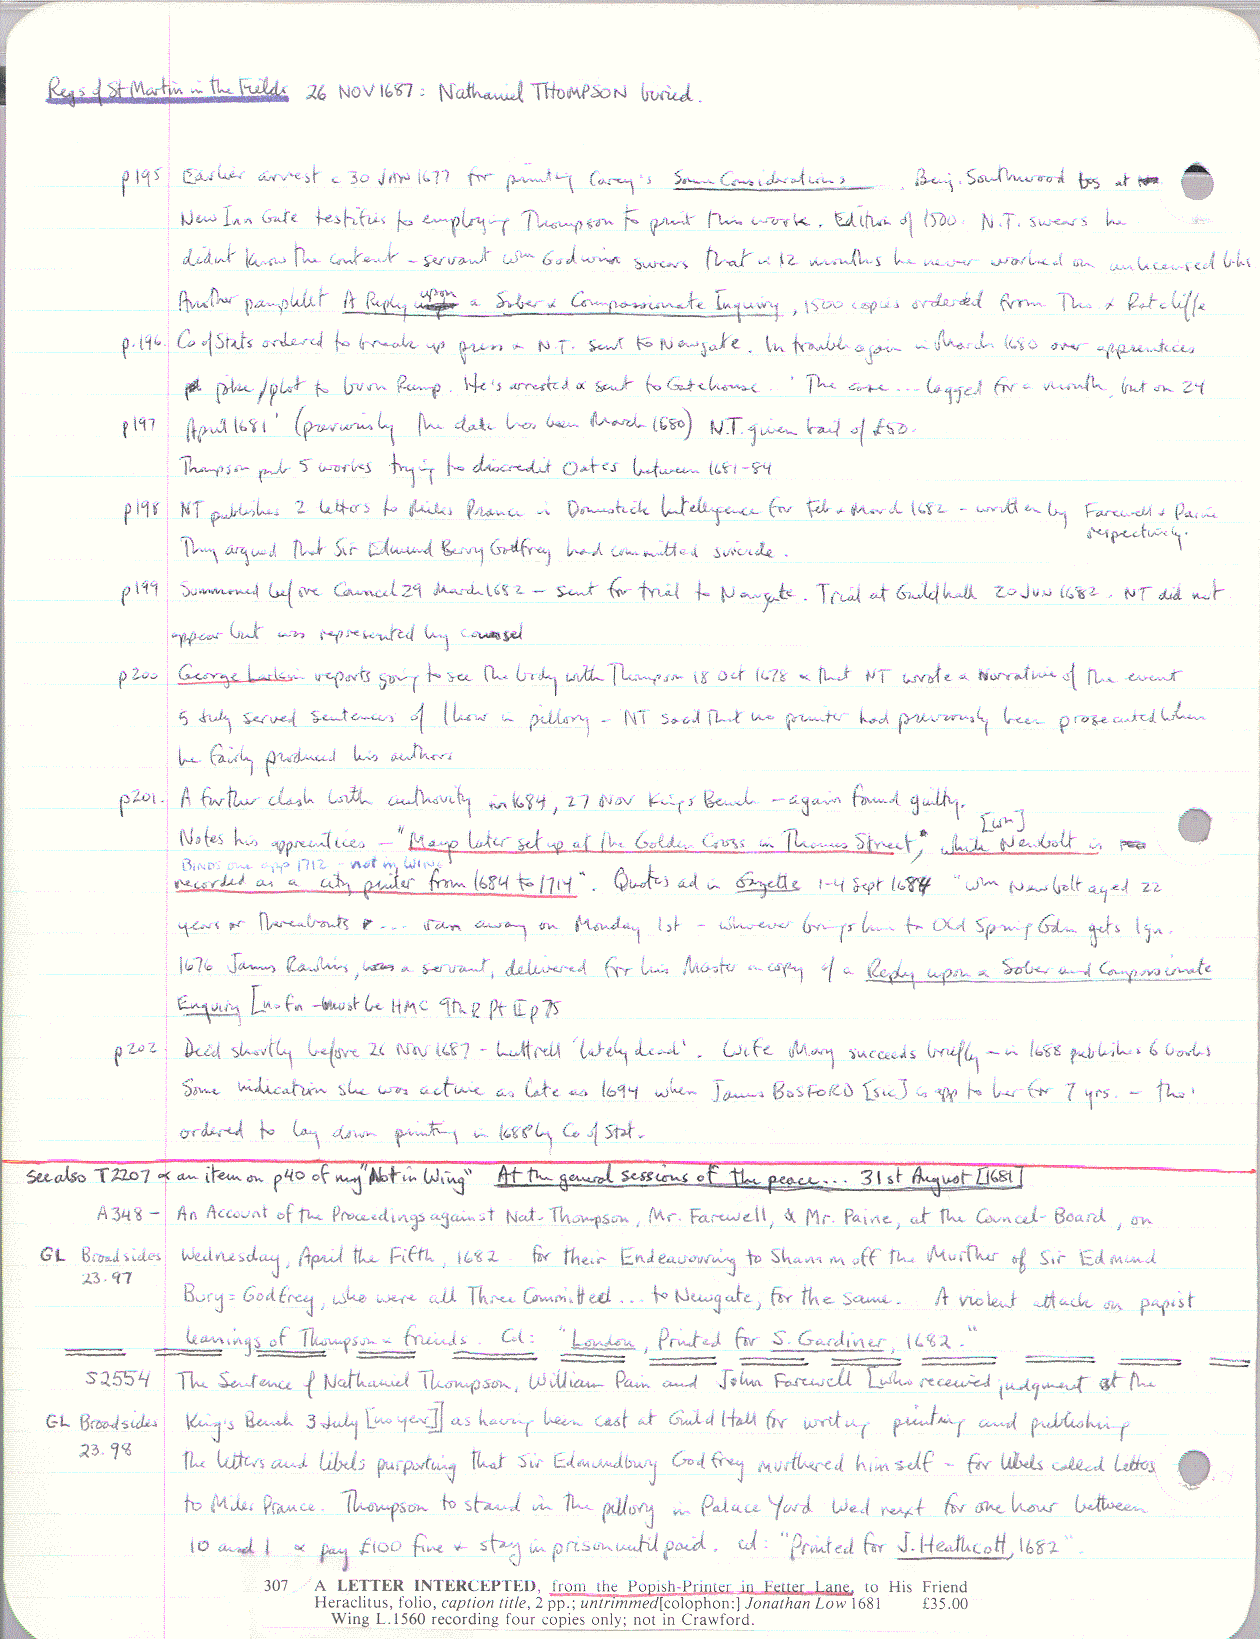 Regs of St Martin in the Fields 26 NOV 1687: Nathaniel THOMPSON buried.
p195 Earlier arrest c 30 JAN 1677 for printing Carey's Some Considerations, Benj. Southwood bs at
New Inn Gate testifies to employing Thompson to print this work. Edition of 1500. N.T. swears he
didnt know the content - servant Wm Godwin swears that in 12 months he never worked on unlicensed bks
Another pamphlet A Reply upon a Sober & Compassionate Inquiry, 1500 copies ordered from Tho & Ratcliffe
p.196 Co of Stats ordered to break up press & N.T. sent to Newgate. In trouble again in March 1680 over apprentices
joke/plot to burn Rump. He's arrested & sent to Gatehouse. 'The case... lagged for a month, but on 24
p197 April 1681' (previously the date has been March 1680) N.T. given bail of £50.
Thompson pub 5 works trying to discredit Oates between 1681-84
p198 NT publishes 2 letters to Miles Prance in Domestick Intelligence for Feb & March 1682 - written by Farewell & Paine
respectively.
They argued that Sir Edmund Berry Godfrey had committed suicide.
p199 Summoned before Council 29 March 1682 - sent for trial to Newgate. Trial at Guildhall 20 JUN 1682. NT did not
appear but was represented by counsel
p200 George Larkin reports going to see the body with Thompson 18 Oct 1678 & that NT wrote a Narrative of the event
5 July served sentences of 1 hour in pillory - NT said that no printer had previously been prosecuted when
he fairly produced his authors
p201. A further clash with authority in 1684, 27 Nov Kings Bench - again found guilty.
[Wm]
Notes his apprentices - "Mayo later set up at the Golden Cross in Thames Street", while Newbolt is
Binds one app 1712 - not in WING
recorded as a city printer from 1684 to 1714". Quotes ad in Gazette 1-4 Sept 1684 "Wm Newbolt aged 22
years or thereabouts ... ran away on Monday 1st - whoever brings him to Old Spring Gdn gets 1gn.
1676 James Rawlins, was a servant, delivered for his Master a copy of a Reply upon a Sober and Compassionate
Enquiry [no fn - must be HMC 9th R Pt II p75
p202 Died shortly before 26 NOV 1687 - Luttrell 'lately dead'. Wife Mary succeeds briefly - in 1688 publishes 6 books
Some indication she was active as late as 1694 when James BOSFORD [sic] is app to her for 7 yrs. - tho'
ordered to lay down printing in 1688 by Co of Stat.
See also T2207 & an item on p40 of my "Not in Wing" At the general sessions of the peace... 31st August [1681]
A348 - An Account of the Proceedings against Nat. Thompson, Mr. Farewell, & Mr. Paine, at the Councel-Board, on
GL Broadsides Wednesday, April the Fifth, 1682 for their Endeavouring to Shamm off the Murther of Sir Edmund
23.97
Bury=Godfrey, who were all Three Committed... to Newgate, for the same. A violent attack on papist
leanings of Thompson & friends. Col: "London, Printed for S. Gardiner, 1682."
S2554 The Sentence of Nathaniel Thompson, William Pain and John Farewell [who received judgment at the
GL Broadsides King's Bench 3 July [no year]] as having been cast at Guild Hall for writing printing and publishing
23.98
the letters and libels purporting that Sir Edmundbury Godfrey murthered himself - for libels called Letters
to Miles Prance. Thompson to stand in the pillory in Palace Yard Wed next for one hour between
10 and 1 & pay £100 fine & stay in prison until paid. col: "Printed for J. Heathcott, 1682".
307 A LETTER INTERCEPTED, from the Popish-Printer in Fetter Lane, to His Friend
Heraclitus, folio, caption title, 2 pp.; untrimmed[colophon:] Jonathan Low 1681 £35.00
Wing L.1560 recording four copies only; not in Crawford.